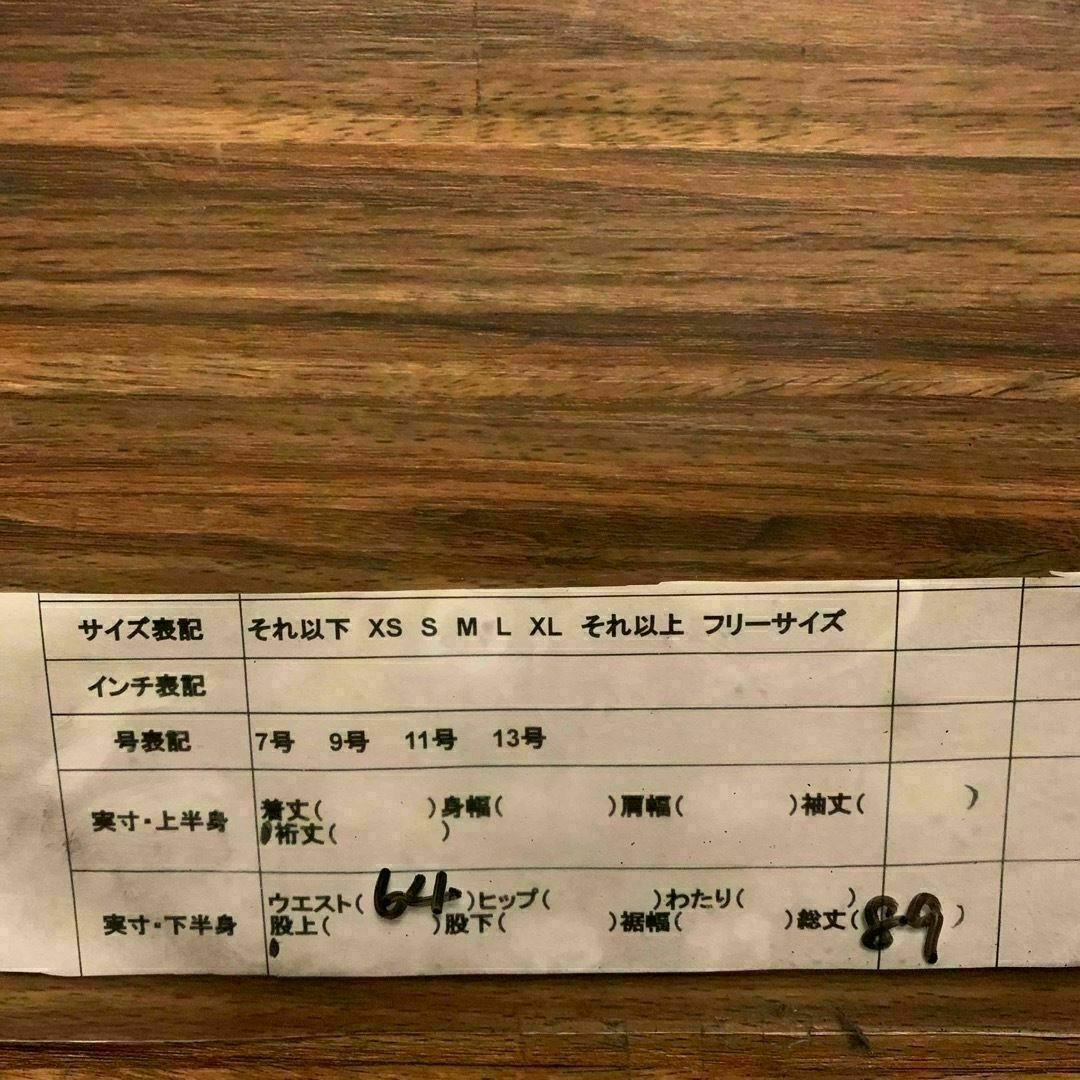 サイズ表記 それ以下 XS S M L XL それ以上 フリーサイズ
インチ表記
号表記 7号 9号 11号 13号
実寸・上半身 着丈( )身幅( )肩幅( )袖丈( )
裄丈( )
実寸・下半身 ウエスト( 64 )ヒップ( )わたり( )
股上( )股下( )裾幅( )総丈( 89 )